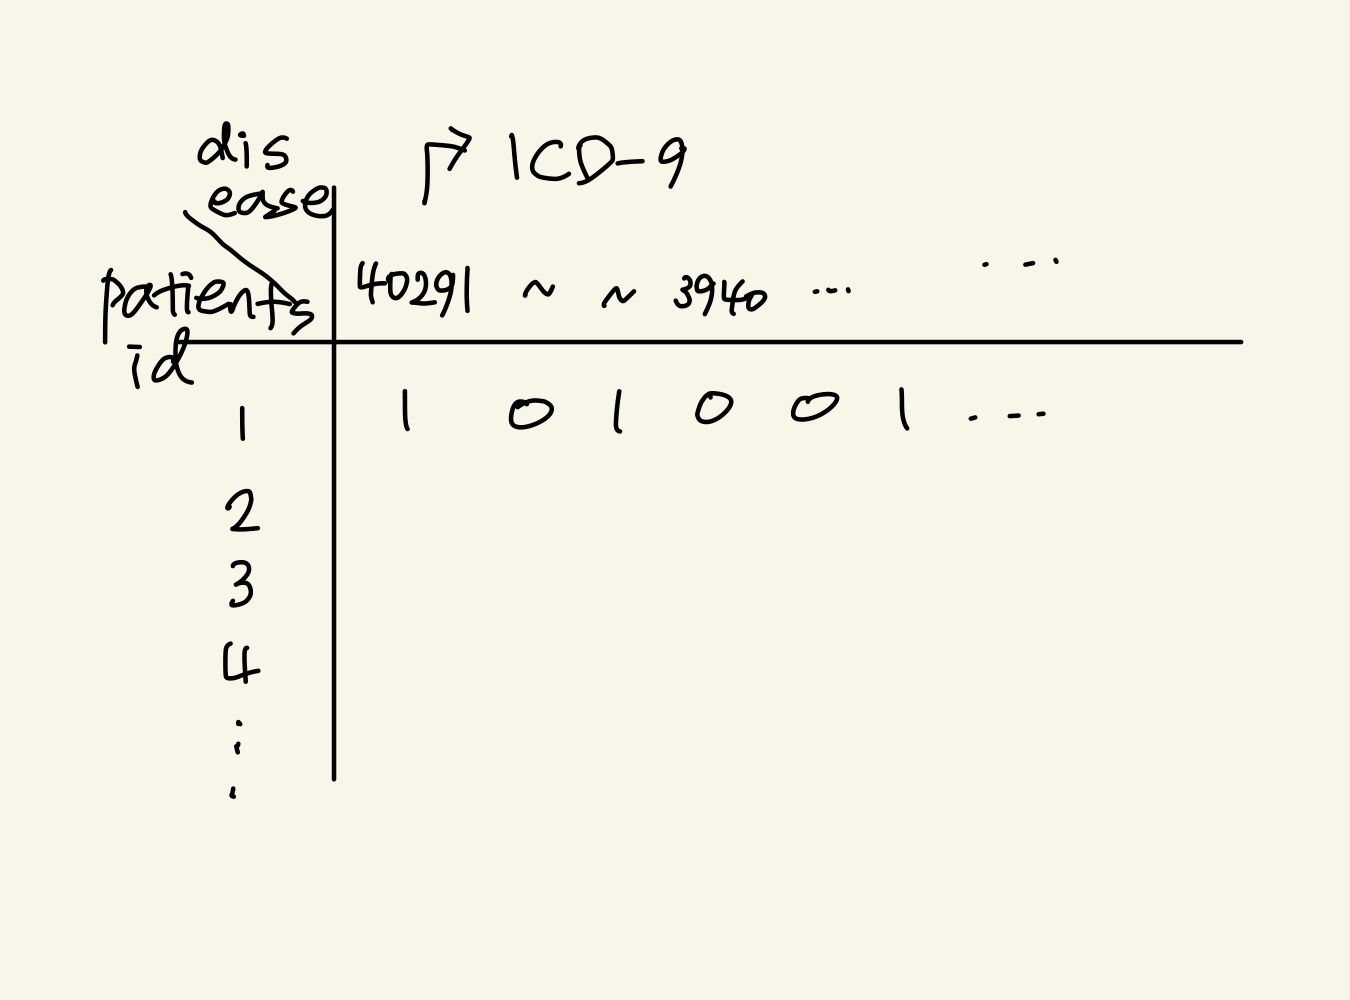 dis
ease
ICD-9
patients
id
40291 ~ ~ 3940 ... ...
1 1 0 1 0 0 1 ...
2
3
4